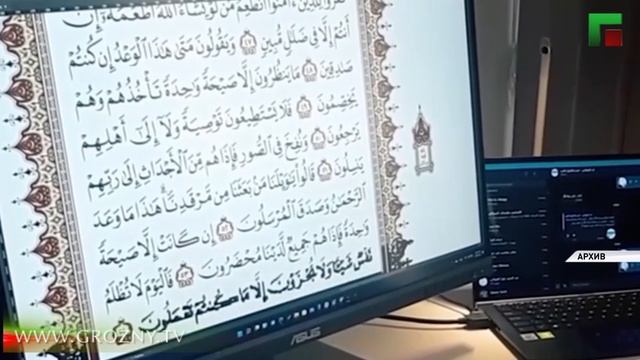 ءَامَنُوٓا۟ أَنُطْعِمُ مَن لَّوْ يَشَآءُ ٱللَّهُ أَطْعَمَهُۥٓ إِنْ
أَنتُمْ إِلَّا فِى ضَلَـٰلٍ مُّبِينٍ ٤٧ وَيَقُولُونَ مَتَىٰ هَـٰذَا ٱلْوَعْدُ إِن كُنتُمْ
صَـٰدِقِينَ ٤٨ مَا يَنظُرُونَ إِلَّا صَيْحَةً وَٰحِدَةً تَأْخُذُهُمْ وَهُمْ
يَخِصِّمُونَ ٤٩ فَلَا يَسْتَطِيعُونَ تَوْصِيَةً وَلَآ إِلَىٰٓ أَهْلِهِمْ
يَرْجِعُونَ ٥٠ وَنُفِخَ فِى ٱلصُّورِ فَإِذَا هُم مِّنَ ٱلْأَجْدَاثِ إِلَىٰ رَبِّهِمْ
يَنسِلُونَ ٥١ قَالُوا۟ يَـٰوَيْلَنَا مَنۢ بَعَثَنَا مِن مَّرْقَدِنَا ۗ هَـٰذَا مَا وَعَدَ
ٱلرَّحْمَـٰنُ وَصَدَقَ ٱلْمُرْسَلُونَ ٥٢ إِن كَانَتْ إِلَّا صَيْحَةً
وَٰحِدَةً فَإِذَا هُمْ جَمِيعٌ لَّدَيْنَا مُحْضَرُونَ ٥٣ فَٱلْيَوْمَ لَا تُظْلَمُ
نَفْسٌ شَيْـًٔا وَلَا تُجْزَوْنَ إِلَّا مَا كُنتُمْ تَعْمَلُونَ
АРХИВ
ASUS
WWW.GROZNY.TV